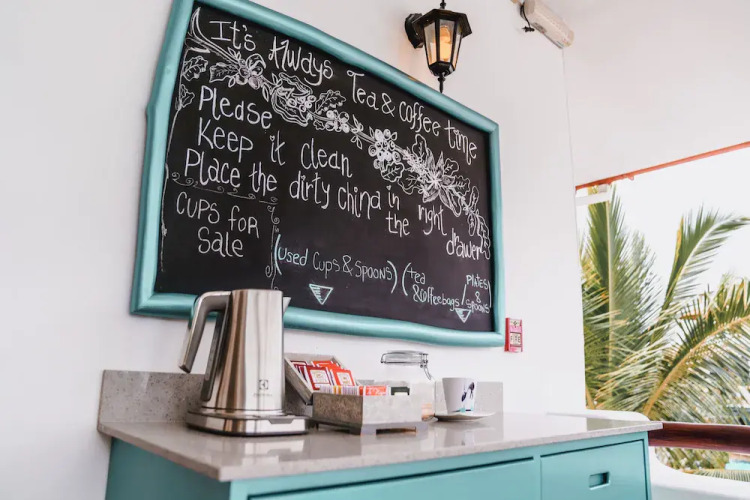 It's Always Tea & coffee time
Please
Keep it clean
Place the dirty china in
the right drawer
CUPS FOR
Sale
(Used Cups & Spoons)
(tea
& Coffeebags/
PLATES
& SPOONS